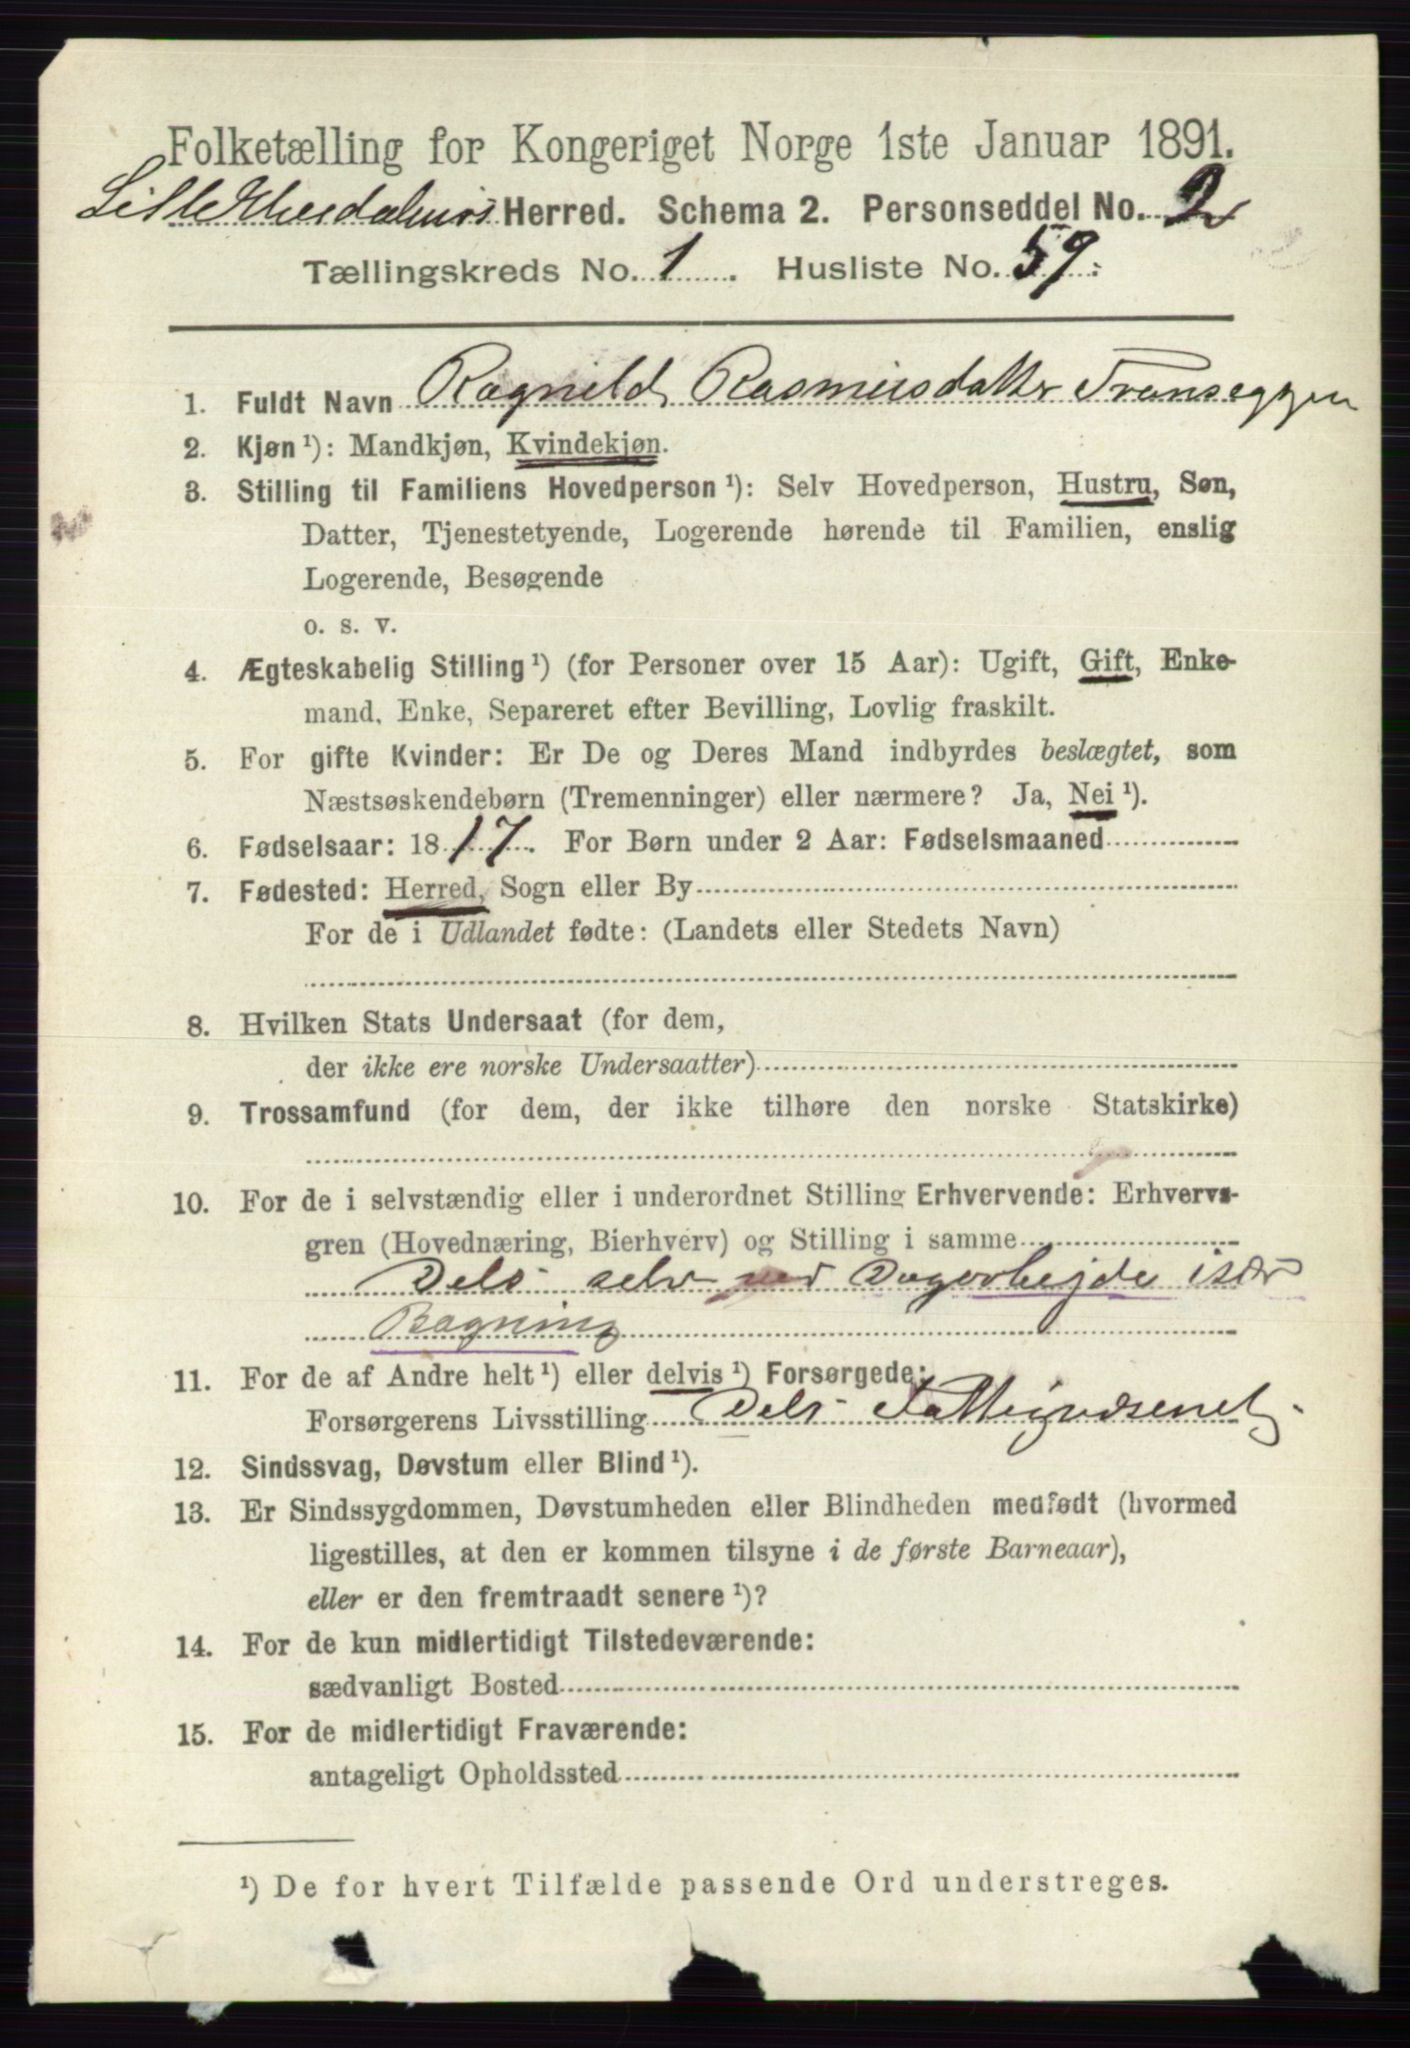 Folketælling for Kongeriget Norge 1ste Januar 1891.
Lille Elvedalens Herred. Schema 2. Personseddel No. 2
Tællingskreds No. 1. Husliste No. 59.
1. Fuldt Navn Ragnild Rasmusdatter Tronseggen
2. Kjøn ¹): Mandkjøn, Kvindekjøn.
3. Stilling til Familiens Hovedperson ¹): Selv Hovedperson, Hustru, Søn,
Datter, Tjenestetyende, Logerende hørende til Familien, enslig
Logerende, Besøgende
o. s. v.
4. Ægteskabelig Stilling ¹) (for Personer over 15 Aar): Ugift, Gift, Enke-
mand, Enke, Separeret efter Bevilling, Lovlig fraskilt.
5. For gifte Kvinder: Er De og Deres Mand indbyrdes beslægtet, som
Næstsøskendebørn (Tremenninger) eller nærmere? Ja, Nei ¹).
6. Fødselsaar: 1817. For Børn under 2 Aar: Fødselsmaaned
7. Fødested: Herred, Sogn eller By
For de i Udlandet fødte: (Landets eller Stedets Navn)
8. Hvilken Stats Undersaat (for dem,
der ikke ere norske Undersaatter)
9. Trossamfund (for dem, der ikke tilhøre den norske Statskirke)
10. For de i selvstændig eller i underordnet Stilling Erhvervende: Erhvervs-
gren (Hovednæring, Bierhverv) og Stilling i samme
Dels selv ved Dagarbejde især
Bagning
11. For de af Andre helt ¹) eller delvis ¹) Forsørgede:
Forsørgerens Livsstilling Dels
12. Sindssvag, Døvstum eller Blind ¹).
13. Er Sindssygdommen, Døvstumheden eller Blindheden medfødt (hvormed
ligestilles, at den er kommen tilsyne i de første Barneaar),
eller er den fremtraadt senere ¹)?
14. For de kun midlertidigt Tilstedeværende:
sædvanligt Bosted
15. For de midlertidigt Fraværende:
antageligt Opholdssted
¹) De for hvert Tilfælde passende Ord understreges.